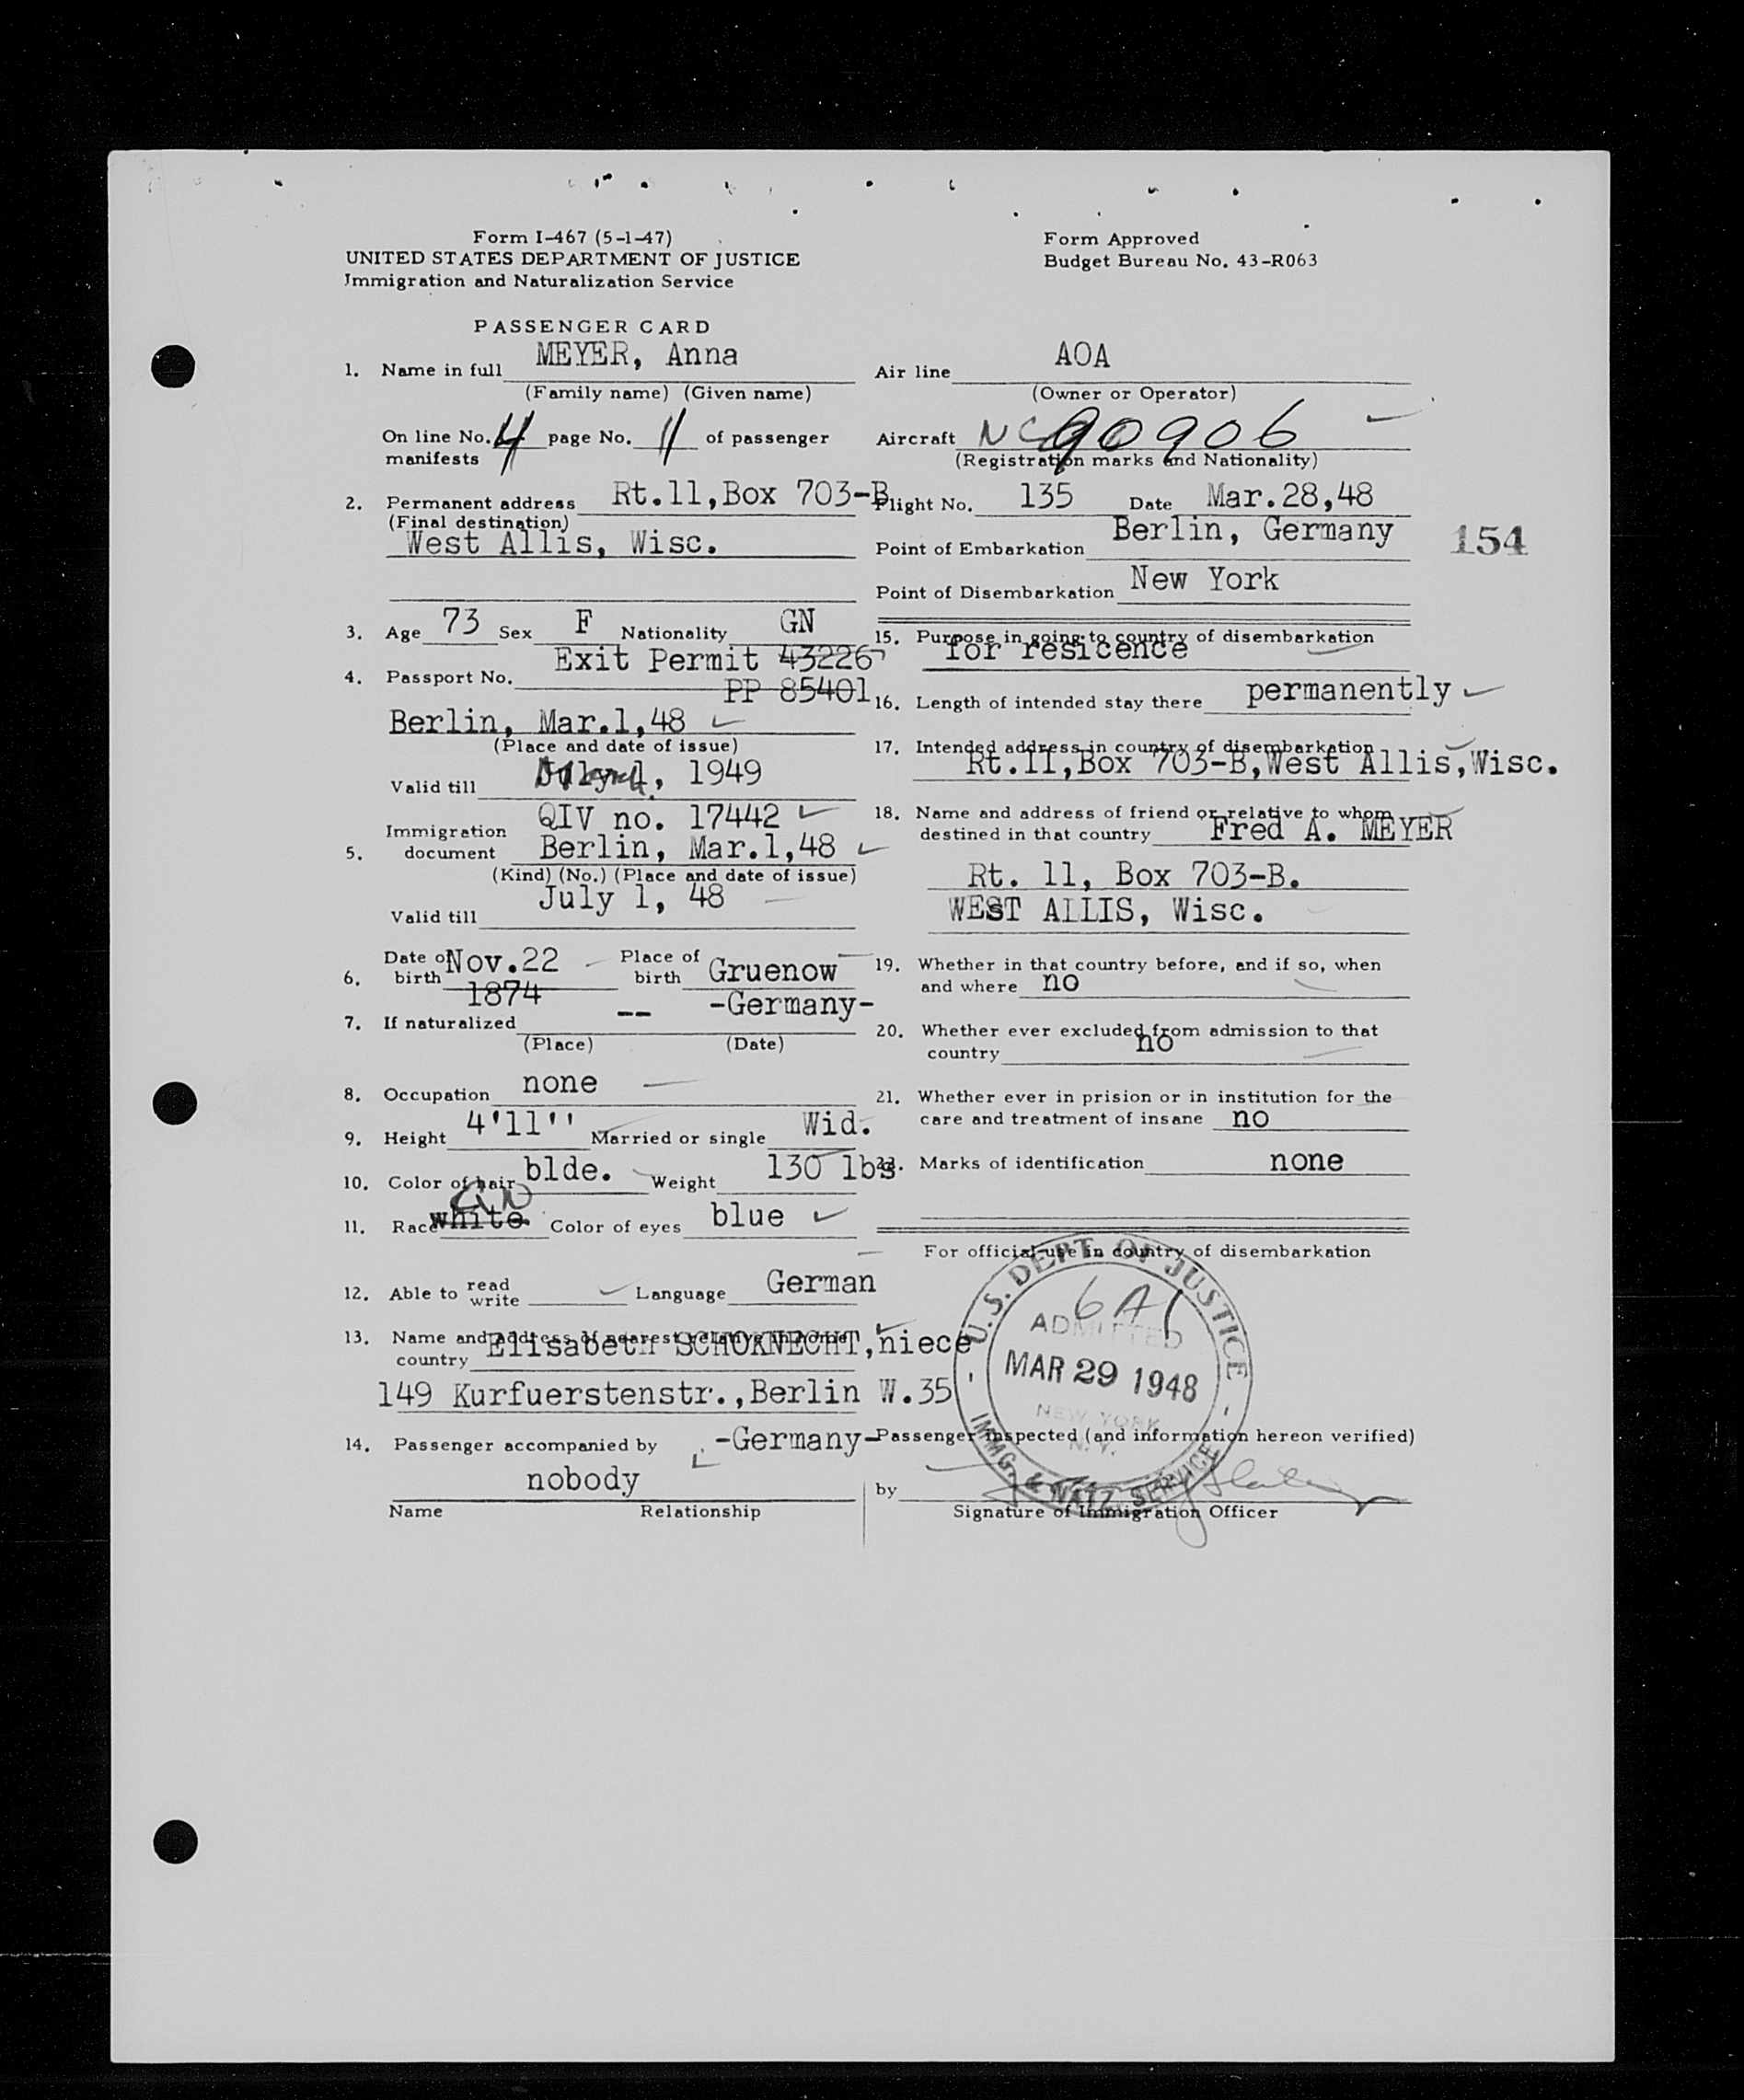 Form I-467 (5-1-47)
UNITED STATES DEPARTMENT OF JUSTICE
Immigration and Naturalization Service
Form Approved
Budget Bureau No. 43-R063
PASSENGER CARD
1. Name in full MEYER, Anna
(Family name) (Given name)
On line No. 4 page No. 11 of passenger
manifests
2. Permanent address Rt.11,Box 703-B
(Final destination)
West Allis, Wisc.
3. Age 73 Sex F Nationality GN
4. Passport No. Exit Permit 43226
PP 85401
Berlin, Mar.1,48
(Place and date of issue)
Valid till 1949
5. Immigration document QIV no. 17442
Berlin, Mar.1,48
(Kind) (No.) (Place and date of issue)
Valid till July 1, 48
6. Date of birth Nov.22 1874 Place of birth Gruenow
-Germany-
7. If naturalized --
(Place) (Date)
8. Occupation none
9. Height 4'11'' Married or single Wid.
10. Color of hair blde. Weight 130 lbs
11. Race white Color of eyes blue
12. Able to read write Language German
13. Name and address of nearest relative in home
country Elisabeth SCHOKNECHT, niece
149 Kurfuerstenstr.,Berlin W.35
-Germany-
14. Passenger accompanied by
nobody
Name Relationship
Air line AOA
(Owner or Operator)
Aircraft NC 90906
(Registration marks and Nationality)
Flight No. 135 Date Mar.28,48
Point of Embarkation Berlin, Germany
154
Point of Disembarkation New York
15. Purpose in going to country of disembarkation
for resicence
16. Length of intended stay there permanently
17. Intended address in country of disembarkation
Rt.11,Box 703-B,West Allis,Wisc.
18. Name and address of friend or relative to whom
destined in that country Fred A. MEYER
Rt. 11, Box 703-B.
WEST ALLIS, Wisc.
19. Whether in that country before, and if so, when
and where no
20. Whether ever excluded from admission to that
country no
21. Whether ever in prision or in institution for the
care and treatment of insane no
22. Marks of identification none
For official use in country of disembarkation
U.S. DEPT. OF JUSTICE
ADMITTED
MAR 29 1948
NEW YORK
N.Y.
IMMG. & NATZ. SERVICE
Passenger inspected (and information hereon verified)
by
Signature of Immigration Officer